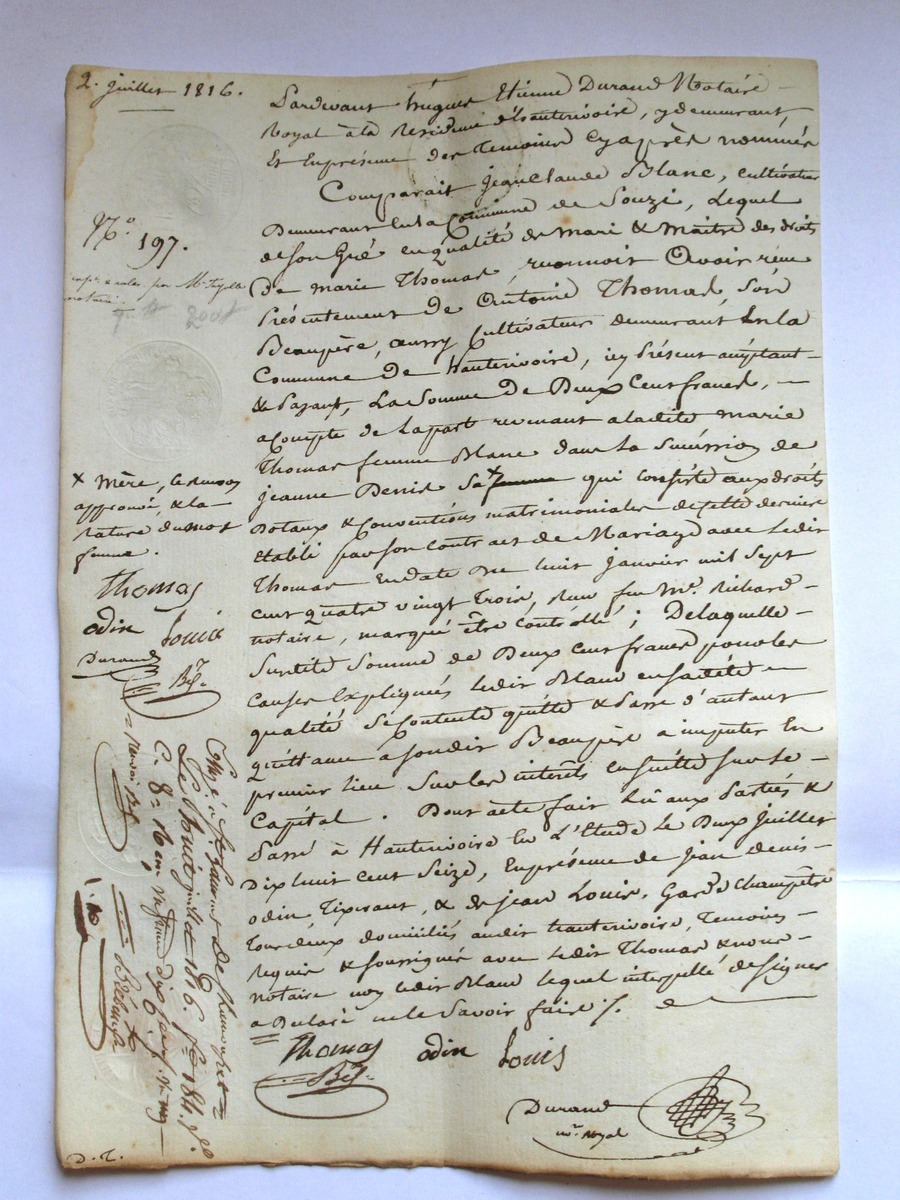 2. juillet 1816.
Pardevant hugues Etienne Durand Notaire
Royal à la Residence d'hauterivoire, y demeurant,
Et En présence des temoins cy après nommés
Comparait jean Claude Blanc, cultivateur
Demeurant En la Commune de Souzi, Lequel
de son Gré en qualité de Mari & Maitre des droits
De marie Thomas, reconnoit Avoir reçu
Présentement de Antoine Thomas, son
Beaupère, aussy Cultivateur demeurant En la
Commune de hauterivoire, icy Présent acceptant
& Payant, La Somme de Deux Cent francs,
a Compte de la part revenant a ladite marie
Thomas femme Blanc dans La Succession de
jeanne Denis Sa x femme qui Consiste aux droits
Dotaux & Conventions matrimoniales de cette derniere
Etabli par son Contract de Mariage avec Ledit
Thomas En date du huit janvier mil Sept
cent quatre vingt Trois, Reçu feu Me. Richard
notaire, marqué être Contrôllé ; De laquelle
Susdite Somme de Deux Cent francs pour les
Causes Expliquées Ledit Blanc en sadite
qualité Se Contente quitte & Passe d'autant
quittance a sondit Beaupère a imputer En
premier lieu Sur les intérêts ensuitte sur le
Capital. Dont acte fait Lû aux Parties &
Passé à Hauterivoire En L'Etude Le Deux juillet
Dix huit cent Seize, En présence de jean denis
odin Tixerant, & de jean Louis, Garde Champêtre
Tous deux domiciliés audit hauterivoire, Temoins
Requis & soussignés avec Ledit Thomas & nous
notaire non Ledit Blanc lequel interpellé de signer
a Déclaré ne le Savoir faire ./.
Thomas odin Louis
Durand
nre. royal
No.
197.
notaire.
200f
x mère, le renvoy
approuvé, & la
rature du mot
femme.
Thomas
odin Louis
Durand
Enré. à St. Laurent De Chamousset
Le huit juillet 1816. fo. 184. Ro.
C. 8.
D. T.